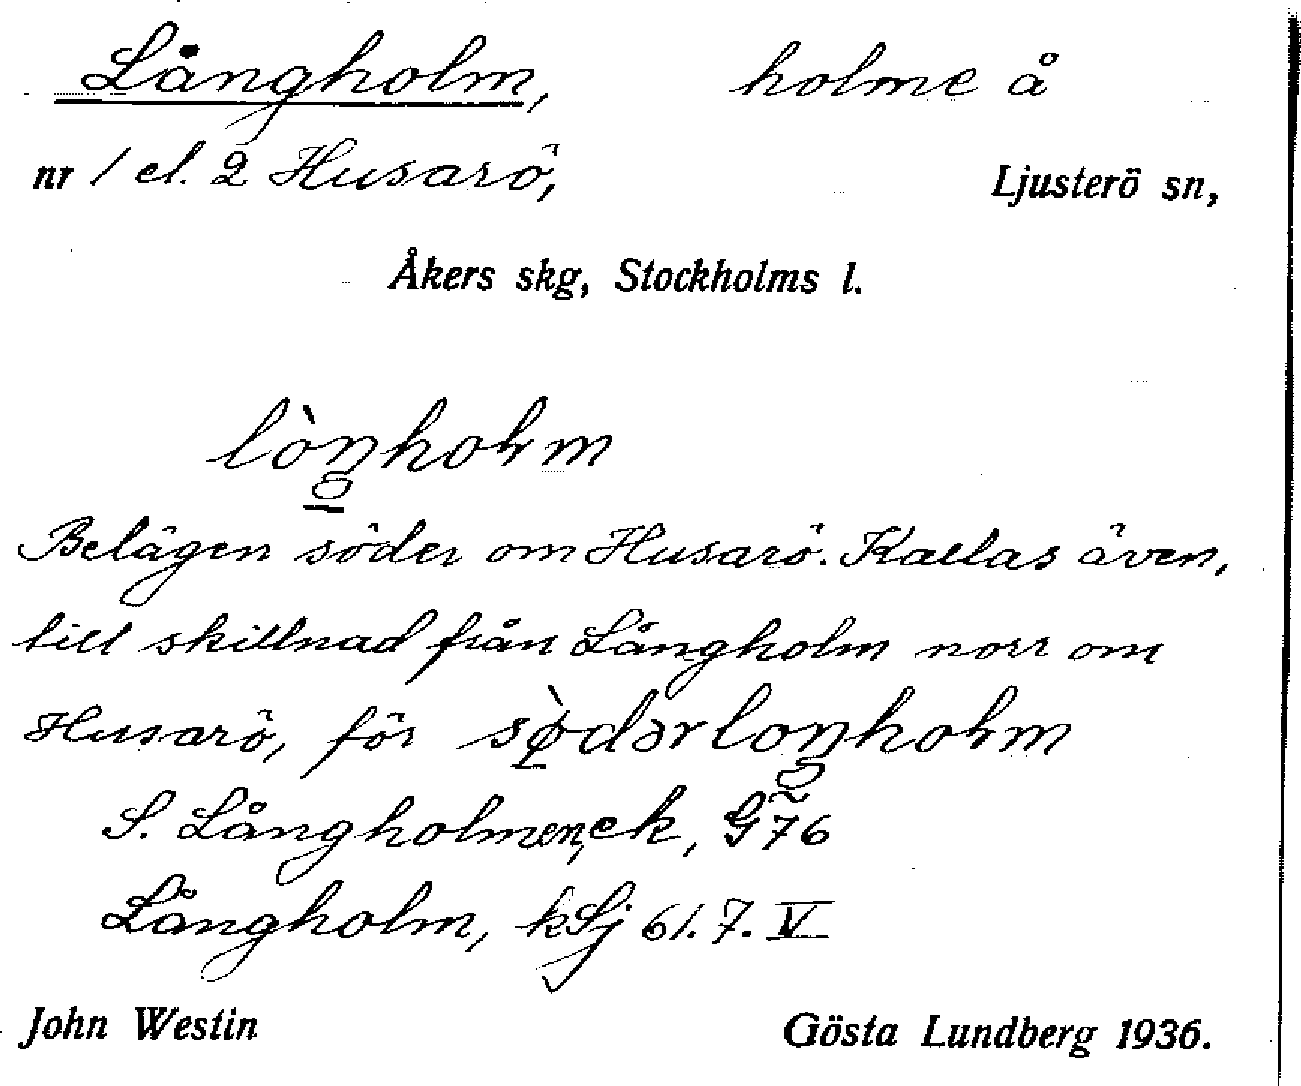 Långholm, holme å
nr 1 el. 2 Husarö, Ljusterö sn,
Åkers skg, Stockholms l.
lòŋholm
Belägen söder om Husarö. Kallas även,
till skillnad från Långholm norr om
Husarö, för sø̀dərloŋholm
S. Långholmen, ek, G 76
Långholm, kSj 61.7.V
John Westin Gösta Lundberg 1936.